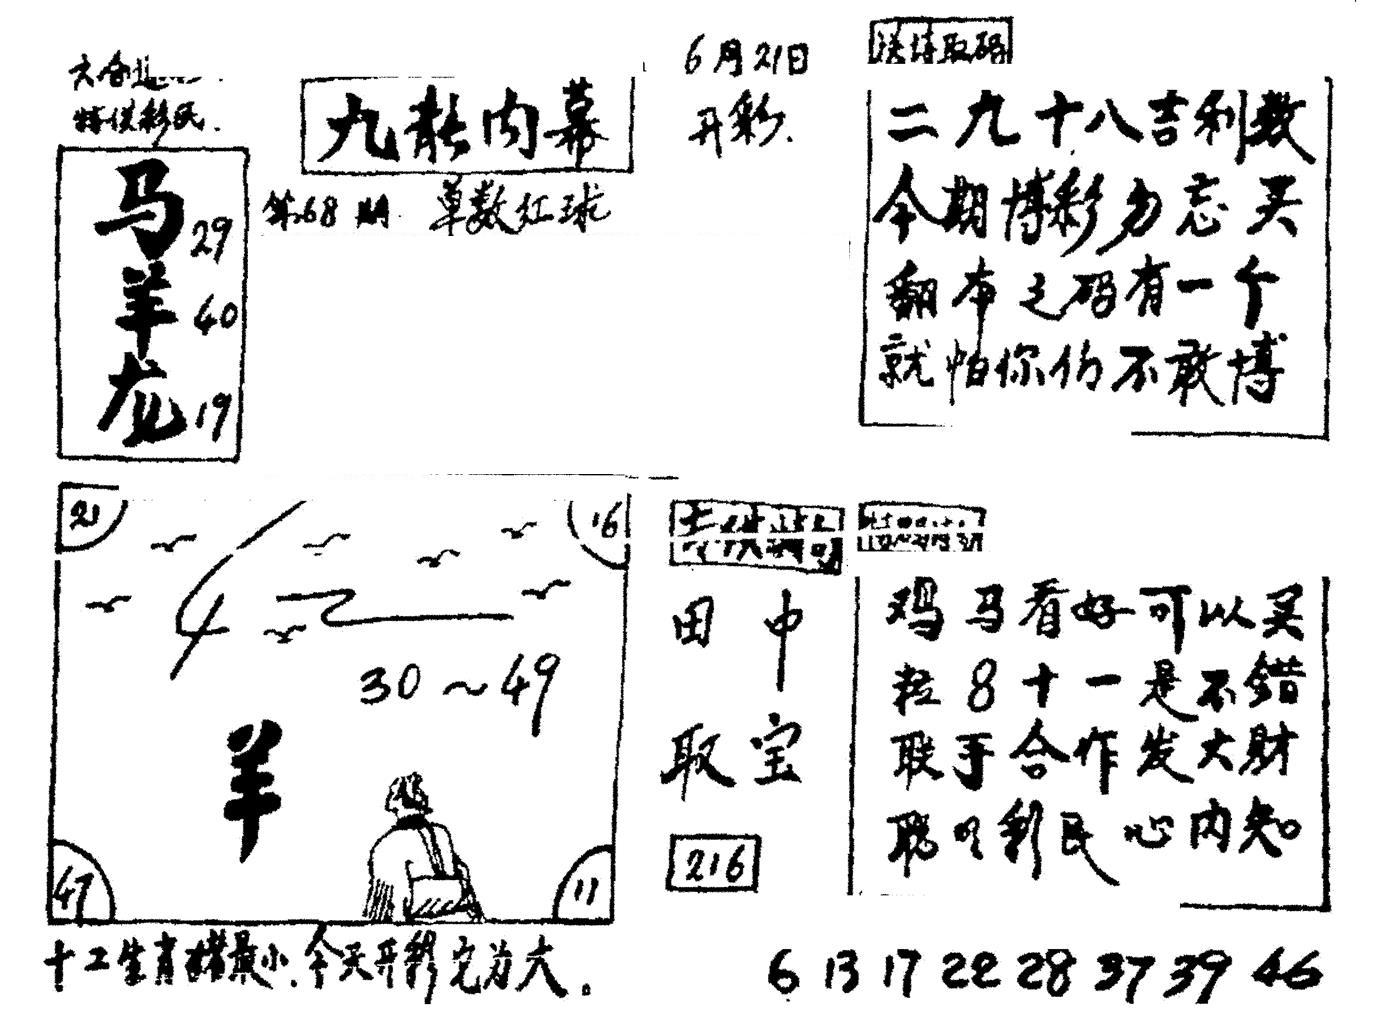 六合
特供彩民.
九龙内幕
6月21日
开彩.
送诗取码
第68期 单数红球
马 29
羊 40
龙 19
二九十八吉利数
今期博彩勿忘买
翻本之码有一个
就怕你仍不敢博
21
16
30~49
羊
47
11
十二生肖猪最小.今天开彩它为大.
田中
取宝
216
鸡马看好可以买
粒8十一是不错
联手合作发大财
聪明彩民心内知
6 13 17 22 28 37 39 46